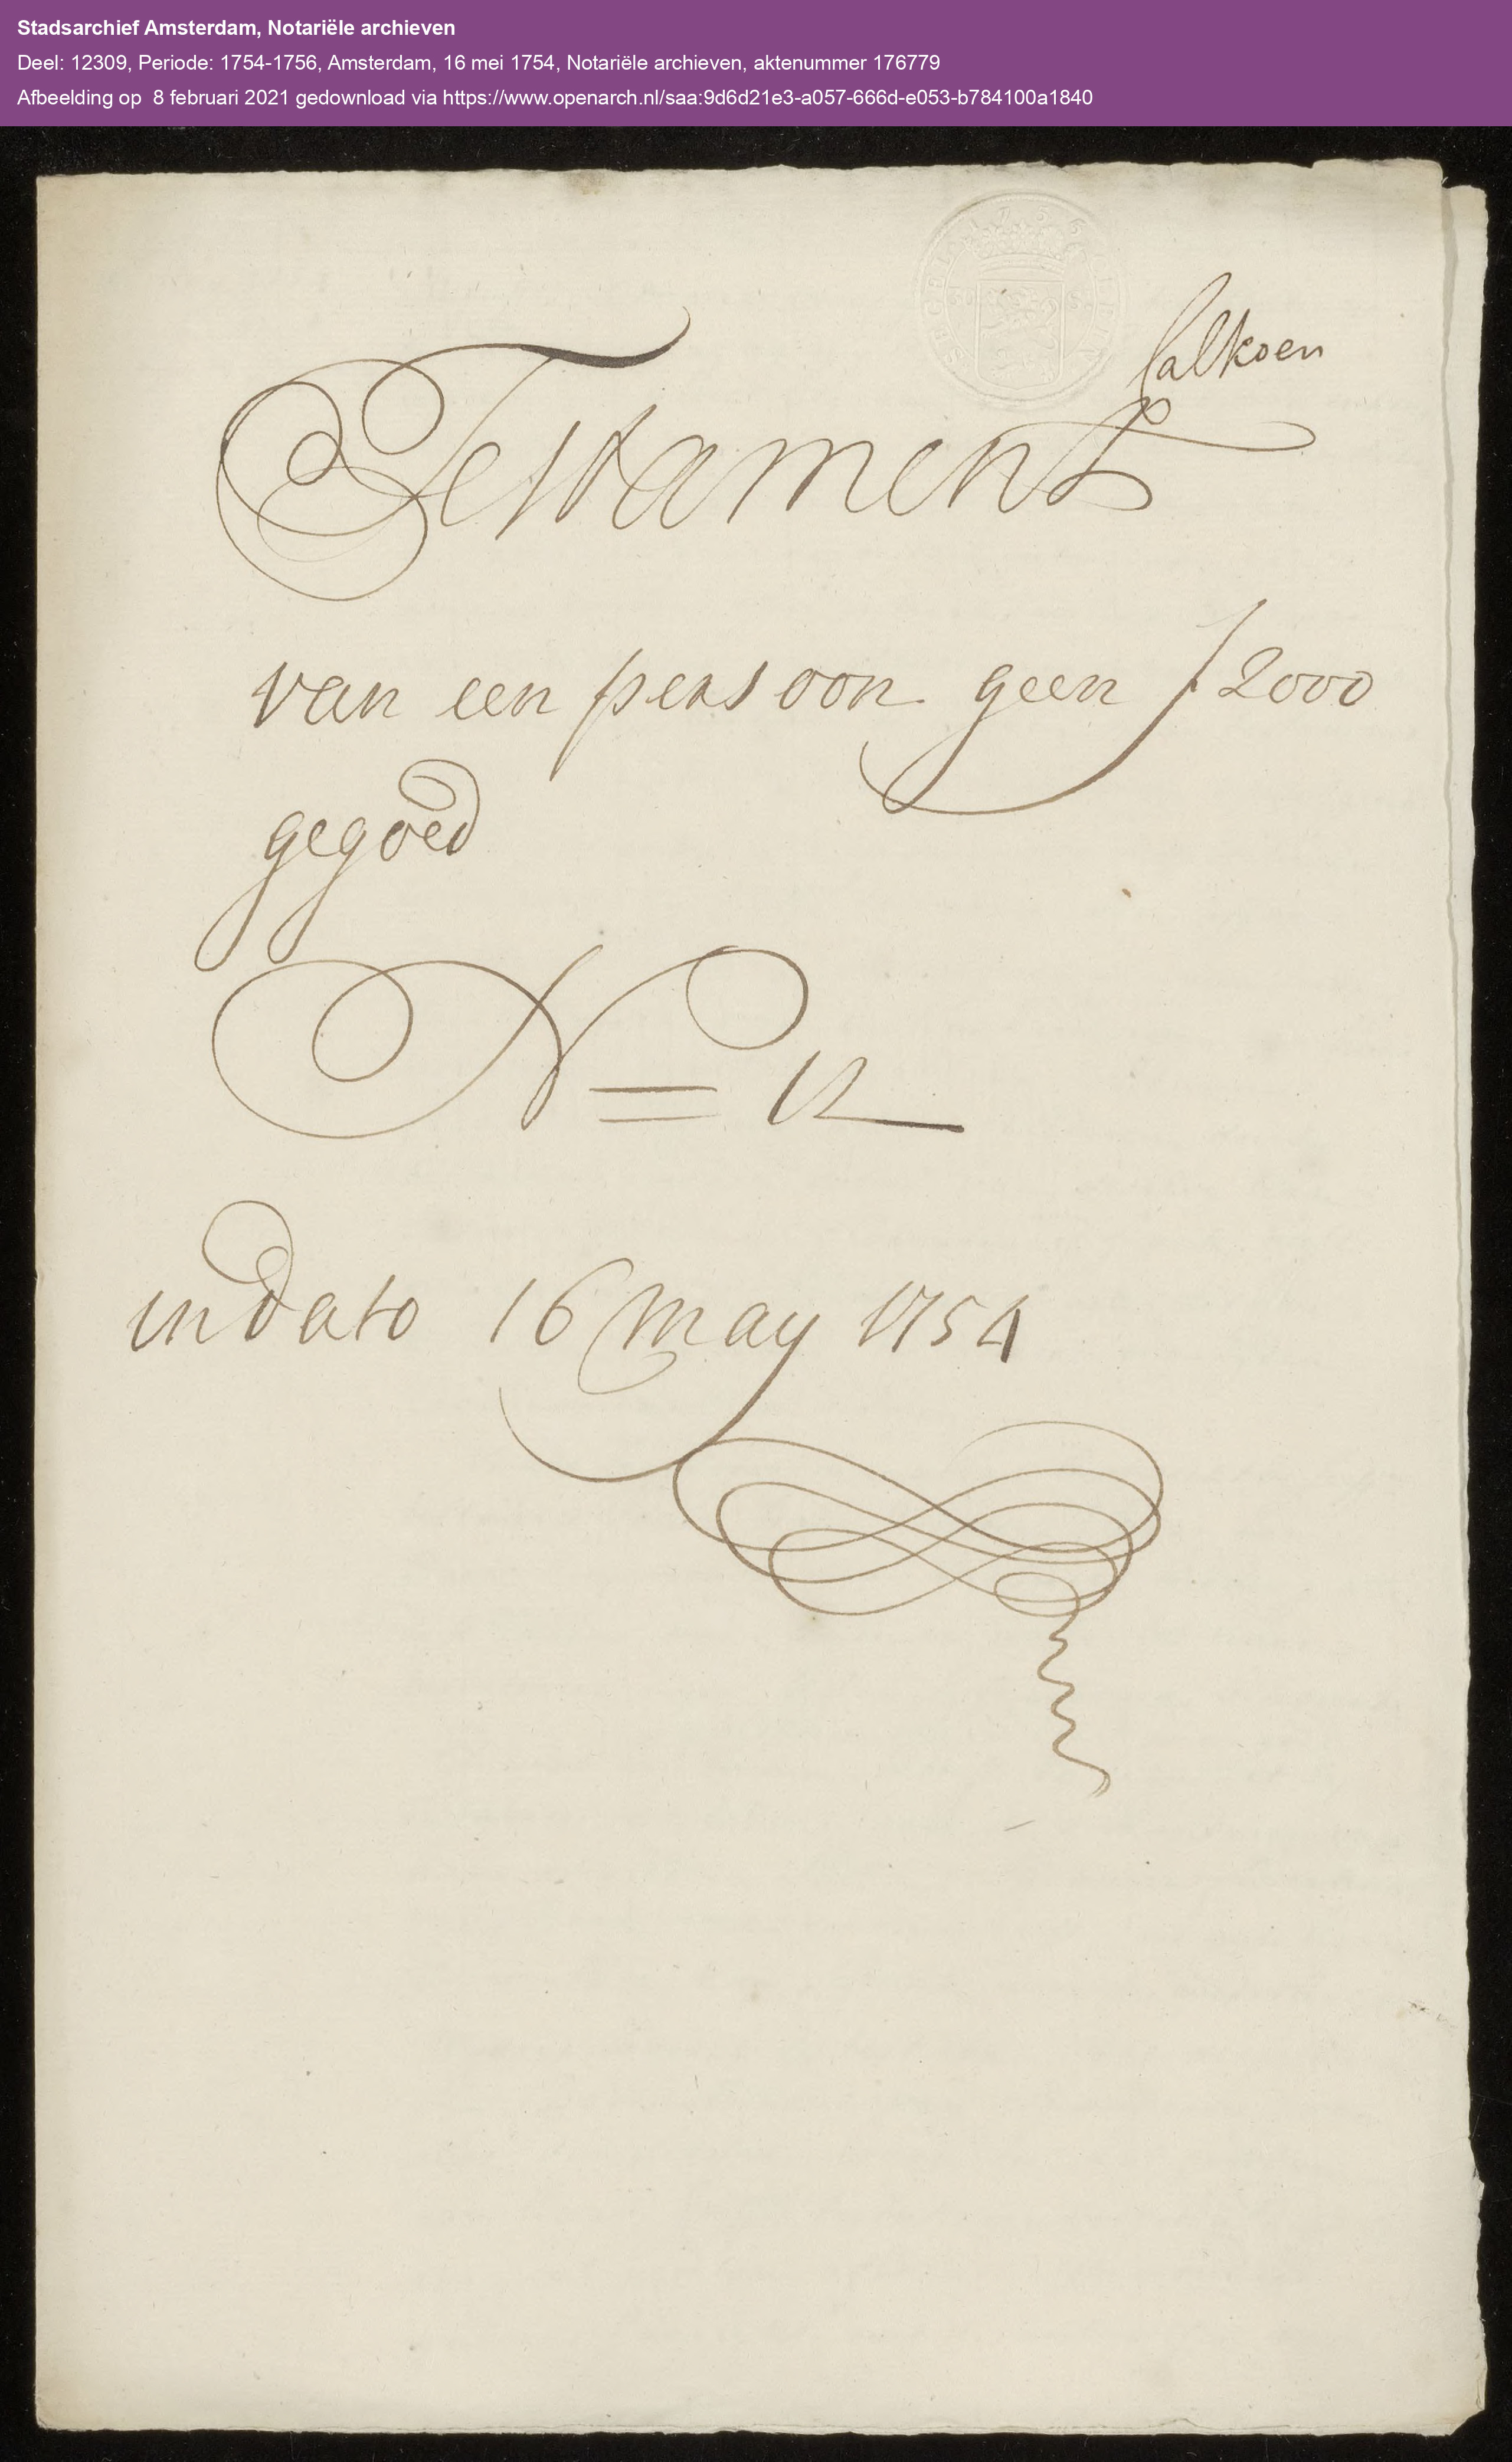 Stadsarchief Amsterdam, Notariële archieven
Deel: 12309, Periode: 1754-1756, Amsterdam, 16 mei 1754, Notariële archieven, aktenummer 176779
Afbeelding op 8 februari 2021 gedownload via https://www.openarch.nl/saa:9d6d21e3-a057-666d-e053-b784100a1840
Calkoen
Testament
van een persoon geen ƒ 2000
gegoed
N= 12
in dato 16 may 1754